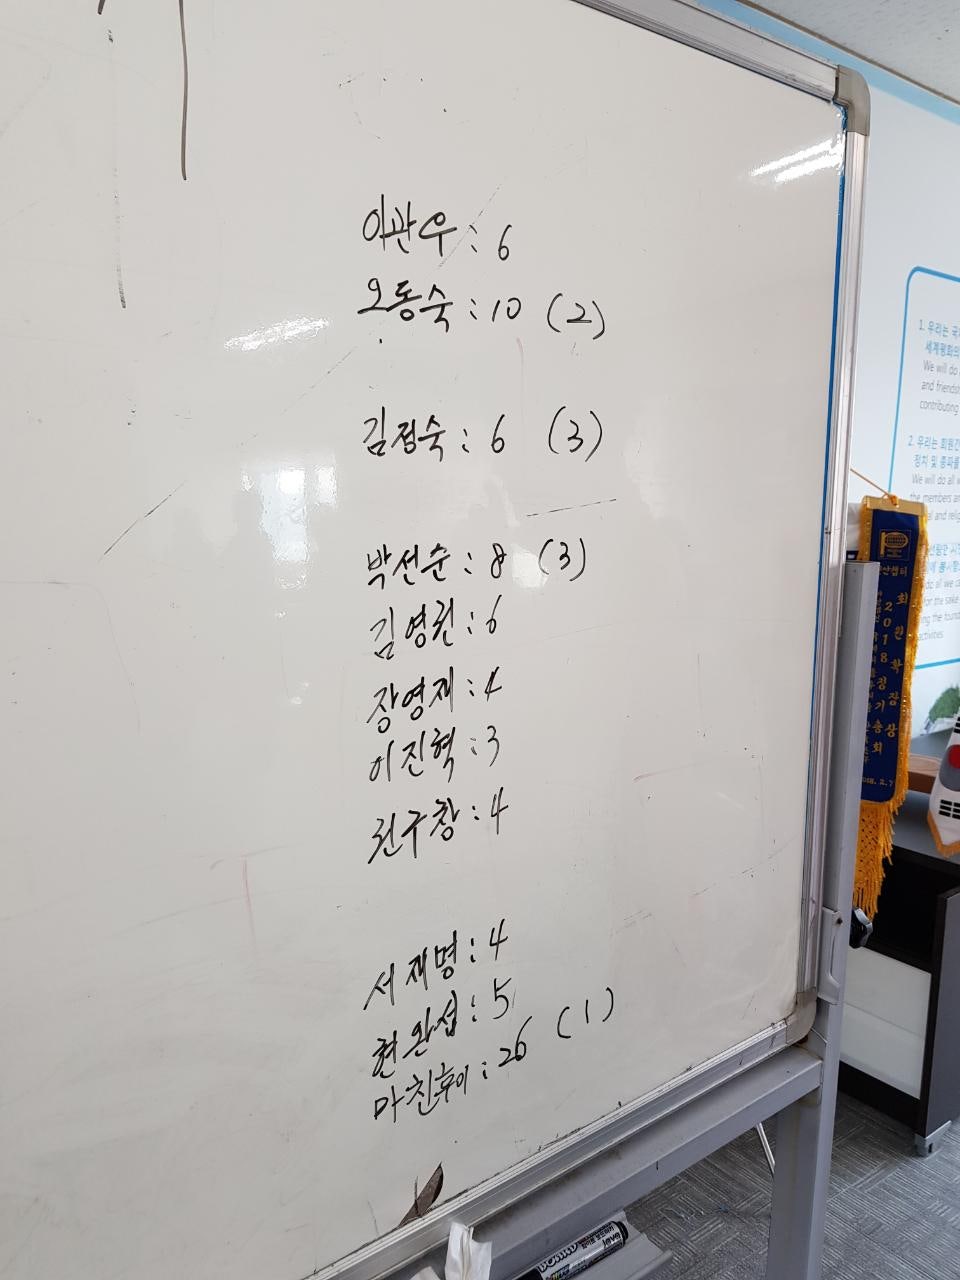 이관우 : 6
오동숙 : 10 (2)
김정숙 : 6 (3)
박선순 : 8 (3)
김영권 : 6
장영재 : 4
이진혁 : 3
권구창 : 4
서재명 : 4
현완섭 : 5
마친후이 : 26 (1)
1. 우리는 국
세계평화의
We will do
and friends
contributing
2. 우리는 회원간
정치 및 종파를
We will do all w
the members an
al and relig
do all we ca
for the sake
ng the found
activities
회원확장상
2018